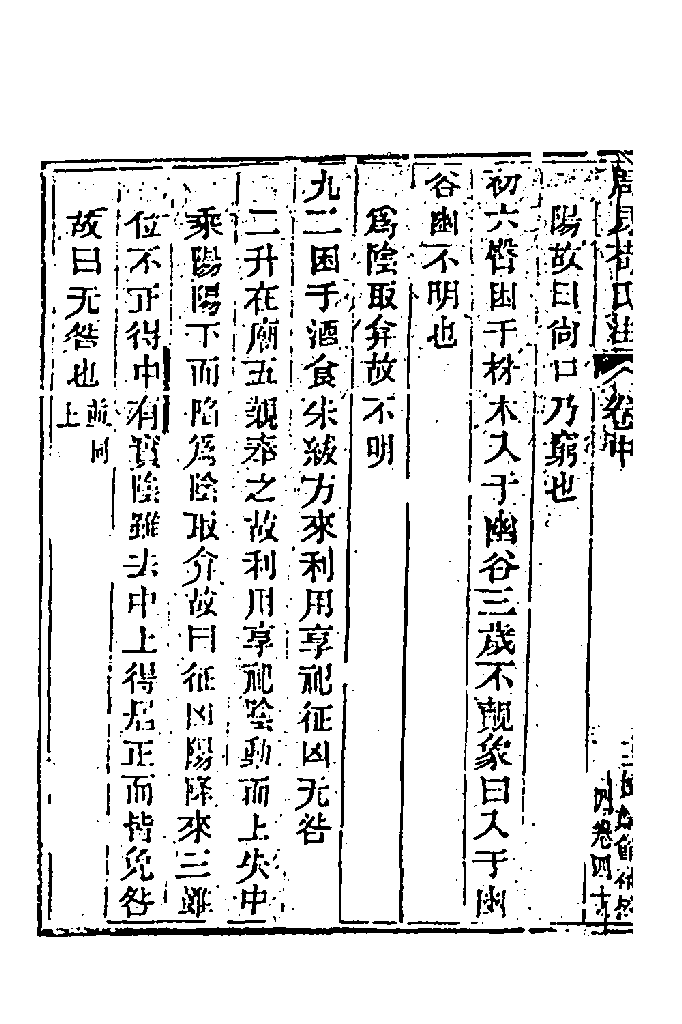 周易荀氏注 卷中
陽故曰尚口乃窮也
初六臀困于株木入于幽谷三歲不覿象曰入于幽
谷幽不明也
爲陰取弇故不明
九二困于酒食朱紱方來利用享祀征凶无咎
二升在廟五親奉之故利用享祀陰動而上失中
乘陽陽下而陷爲陰取弇故曰征凶陽降來二雖
位不正得中有實陰雖去中上得居正而皆免咎
故曰无咎也並同上